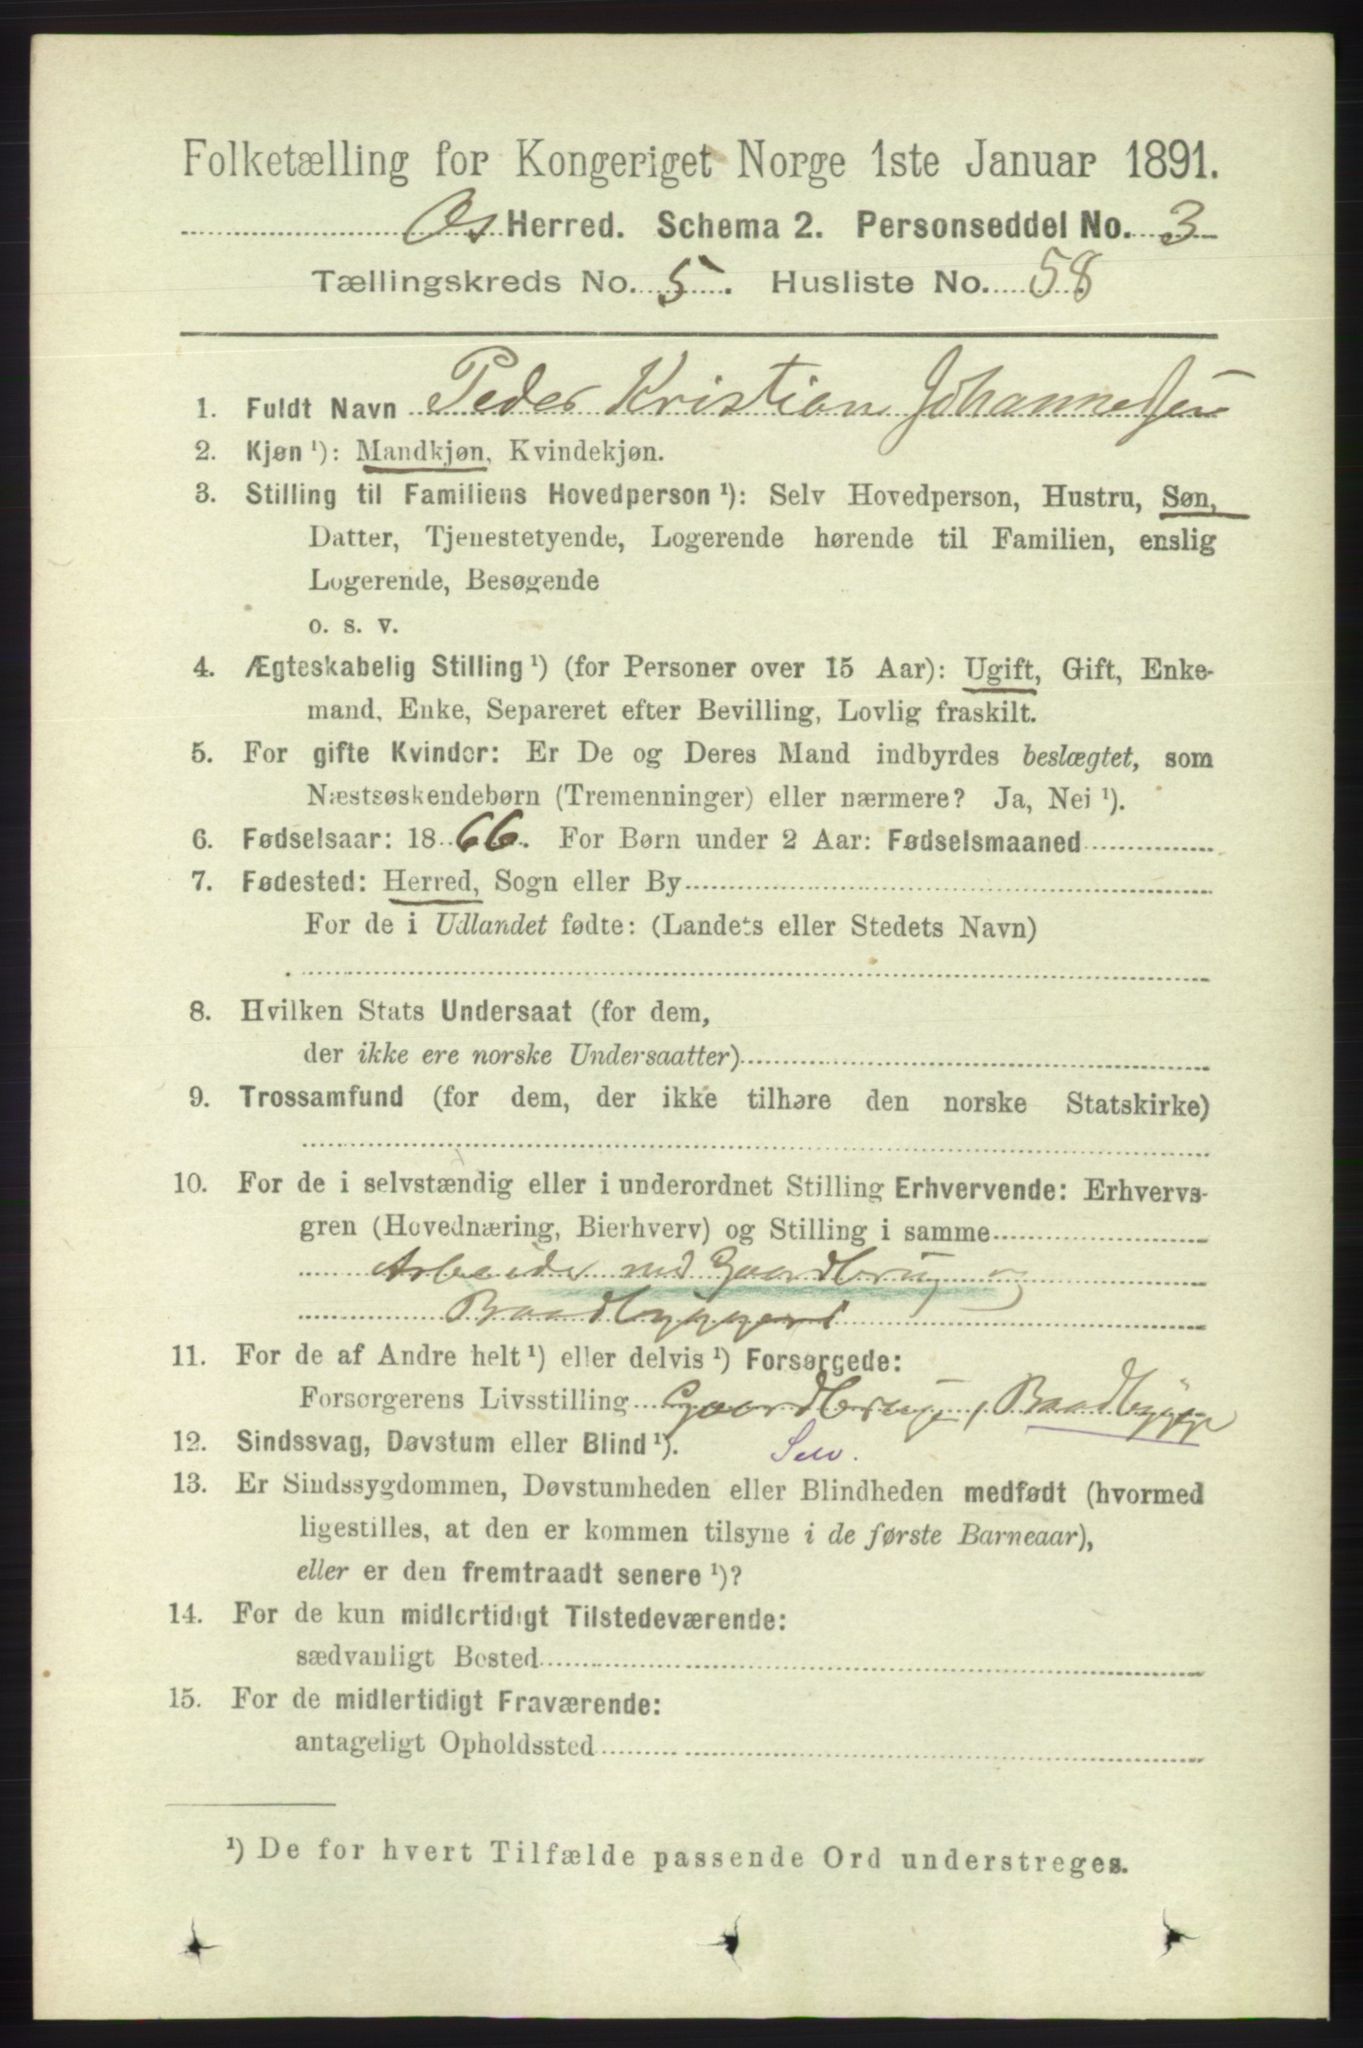 Folketælling for Kongeriget Norge 1ste Januar 1891.
Os Herred. Schema 2. Personseddel No. 3
Tællingskreds No. 5. Husliste No. 58
1. Fuldt Navn Peder Kristian Johannesen
2. Kjøn ¹): Mandkjøn, Kvindekjøn.
3. Stilling til Familiens Hovedperson ¹): Selv Hovedperson, Hustru, Søn,
Datter, Tjenestetyende, Logerende hørende til Familien, enslig
Logerende, Besøgende
o. s. v.
4. Ægteskabelig Stilling ¹) (for Personer over 15 Aar): Ugift, Gift, Enke-
mand, Enke, Separeret efter Bevilling, Lovlig fraskilt.
5. For gifte Kvinder: Er De og Deres Mand indbyrdes beslægtet, som
Næstsøskendebørn (Tremenninger) eller nærmere? Ja, Nei ¹).
6. Fødselsaar: 1866. For Børn under 2 Aar: Fødselsmaaned
7. Fødested: Herred, Sogn eller By
For de i Udlandet fødte: (Landets eller Stedets Navn)
8. Hvilken Stats Undersaat (for dem,
der ikke ere norske Undersaatter)
9. Trossamfund (for dem, der ikke tilhøre den norske Statskirke)
10. For de i selvstændig eller i underordnet Stilling Erhvervende: Erhvervs-
gren (Hovednæring, Bierhverv) og Stilling i samme
Arbeider ved Gaardbrug og
Baadbyggeri
11. For de af Andre helt ¹) eller delvis ¹) Forsørgede:
Forsørgerens Livsstilling Gaardbrug, Baadbygge
12. Sindssvag, Døvstum eller Blind ¹). Selv.
13. Er Sindssygdommen, Døvstumheden eller Blindheden medfødt (hvormed
ligestilles, at den er kommen tilsyne i de første Barneaar),
eller er den fremtraadt senere ¹)?
14. For de kun midlertidigt Tilstedeværende:
sædvanligt Bosted
15. For de midlertidigt Fraværende:
antageligt Opholdssted
¹) De for hvert Tilfælde passende Ord understreges.